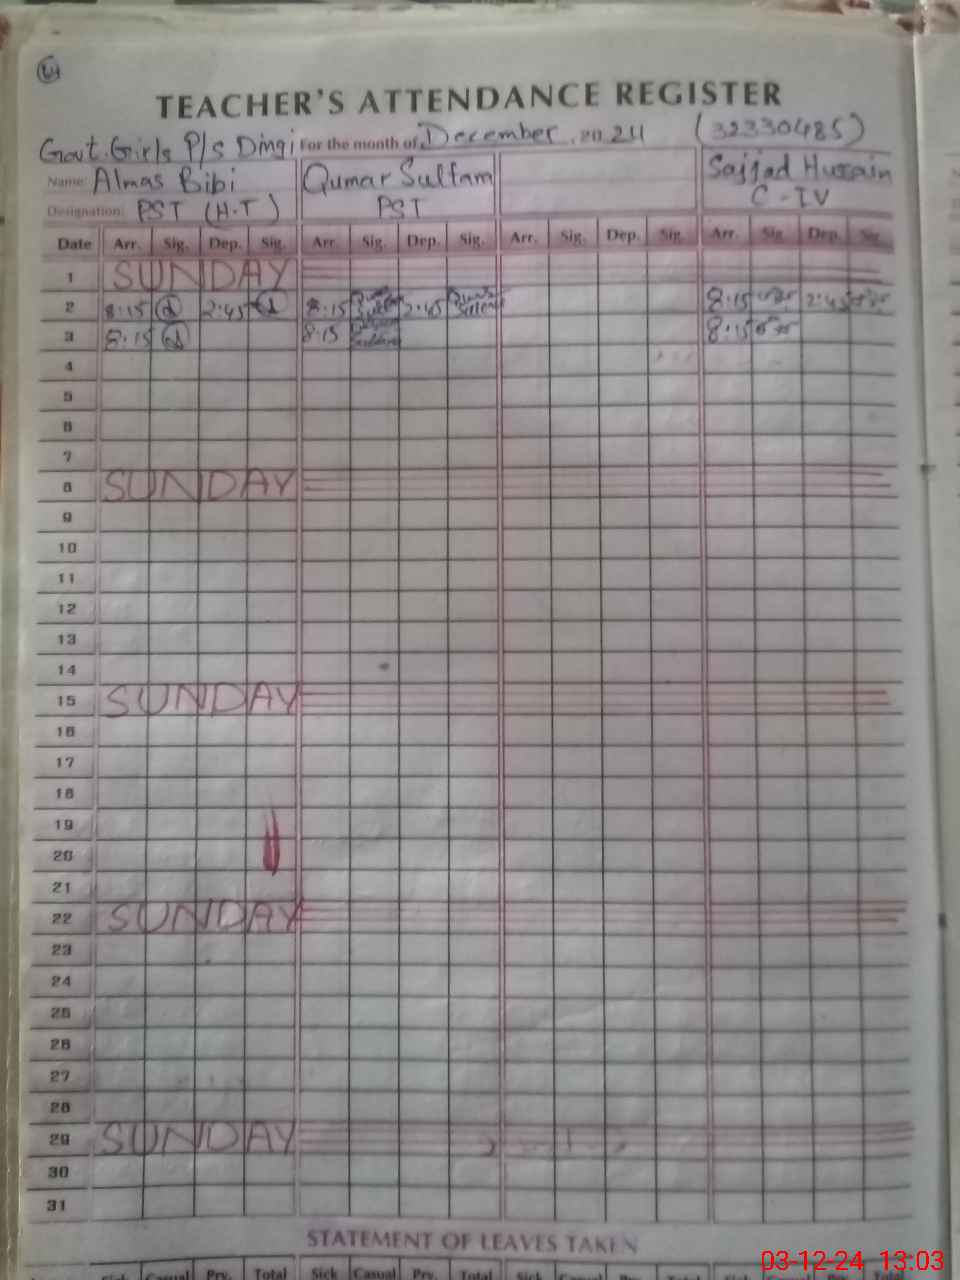 TEACHER'S ATTENDANCE REGISTER
Govt. Girls P/s Dingi For the month of December 2024 (32330485)
Name: Almas Bibi Qumar Sultam Sajjad Hussain
Designation: PST (H.T) PST C-IV
Date Arr. Sig. Dep. Sig. Arr. Sig. Dep. Sig. Arr. Sig. Dep. Sig. Arr. Sig. Dep. Sig.
1 SUNDAY
2 8:15 2:45 8:15 2:45 8:15 2:45
3 8:15 8:15 8:15
4
5
6
7
8 SUNDAY
9
10
11
12
13
14
15 SUNDAY
16
17
18
19
20
21
22 SUNDAY
23
24
25
26
27
28
29 SUNDAY
30
31
STATEMENT OF LEAVES TAKEN
Sick Casual Prv. Total Sick Casual Prv. Total Sick Casual Prv. Total Sick Casual Prv.
03-12-24 13:03